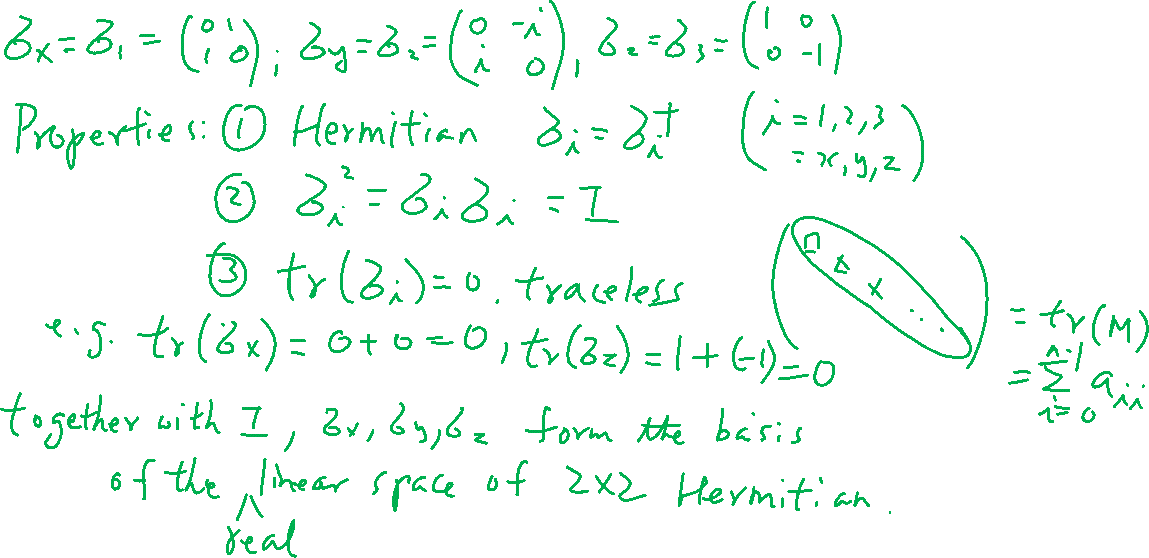 σx = σ₁ = (0 1; 1 0), σy = σ₂ = (0 -i; i 0), σz = σ₃ = (1 0; 0 -1)
Properties: ① Hermitian σi = σi† (i = 1,2,3 = x,y,z)
② σi² = σi σi = I
③ tr(σi) = 0. traceless
e.g. tr(σx) = 0 + 0 = 0, tr(σz) = 1 + (-1) = 0
( □ Δ x ... ) = tr(M)
= Σ_{i=0}^{n-1} aii
together with I, σx, σy, σz form the basis
of the real linear space of 2x2 Hermitian.